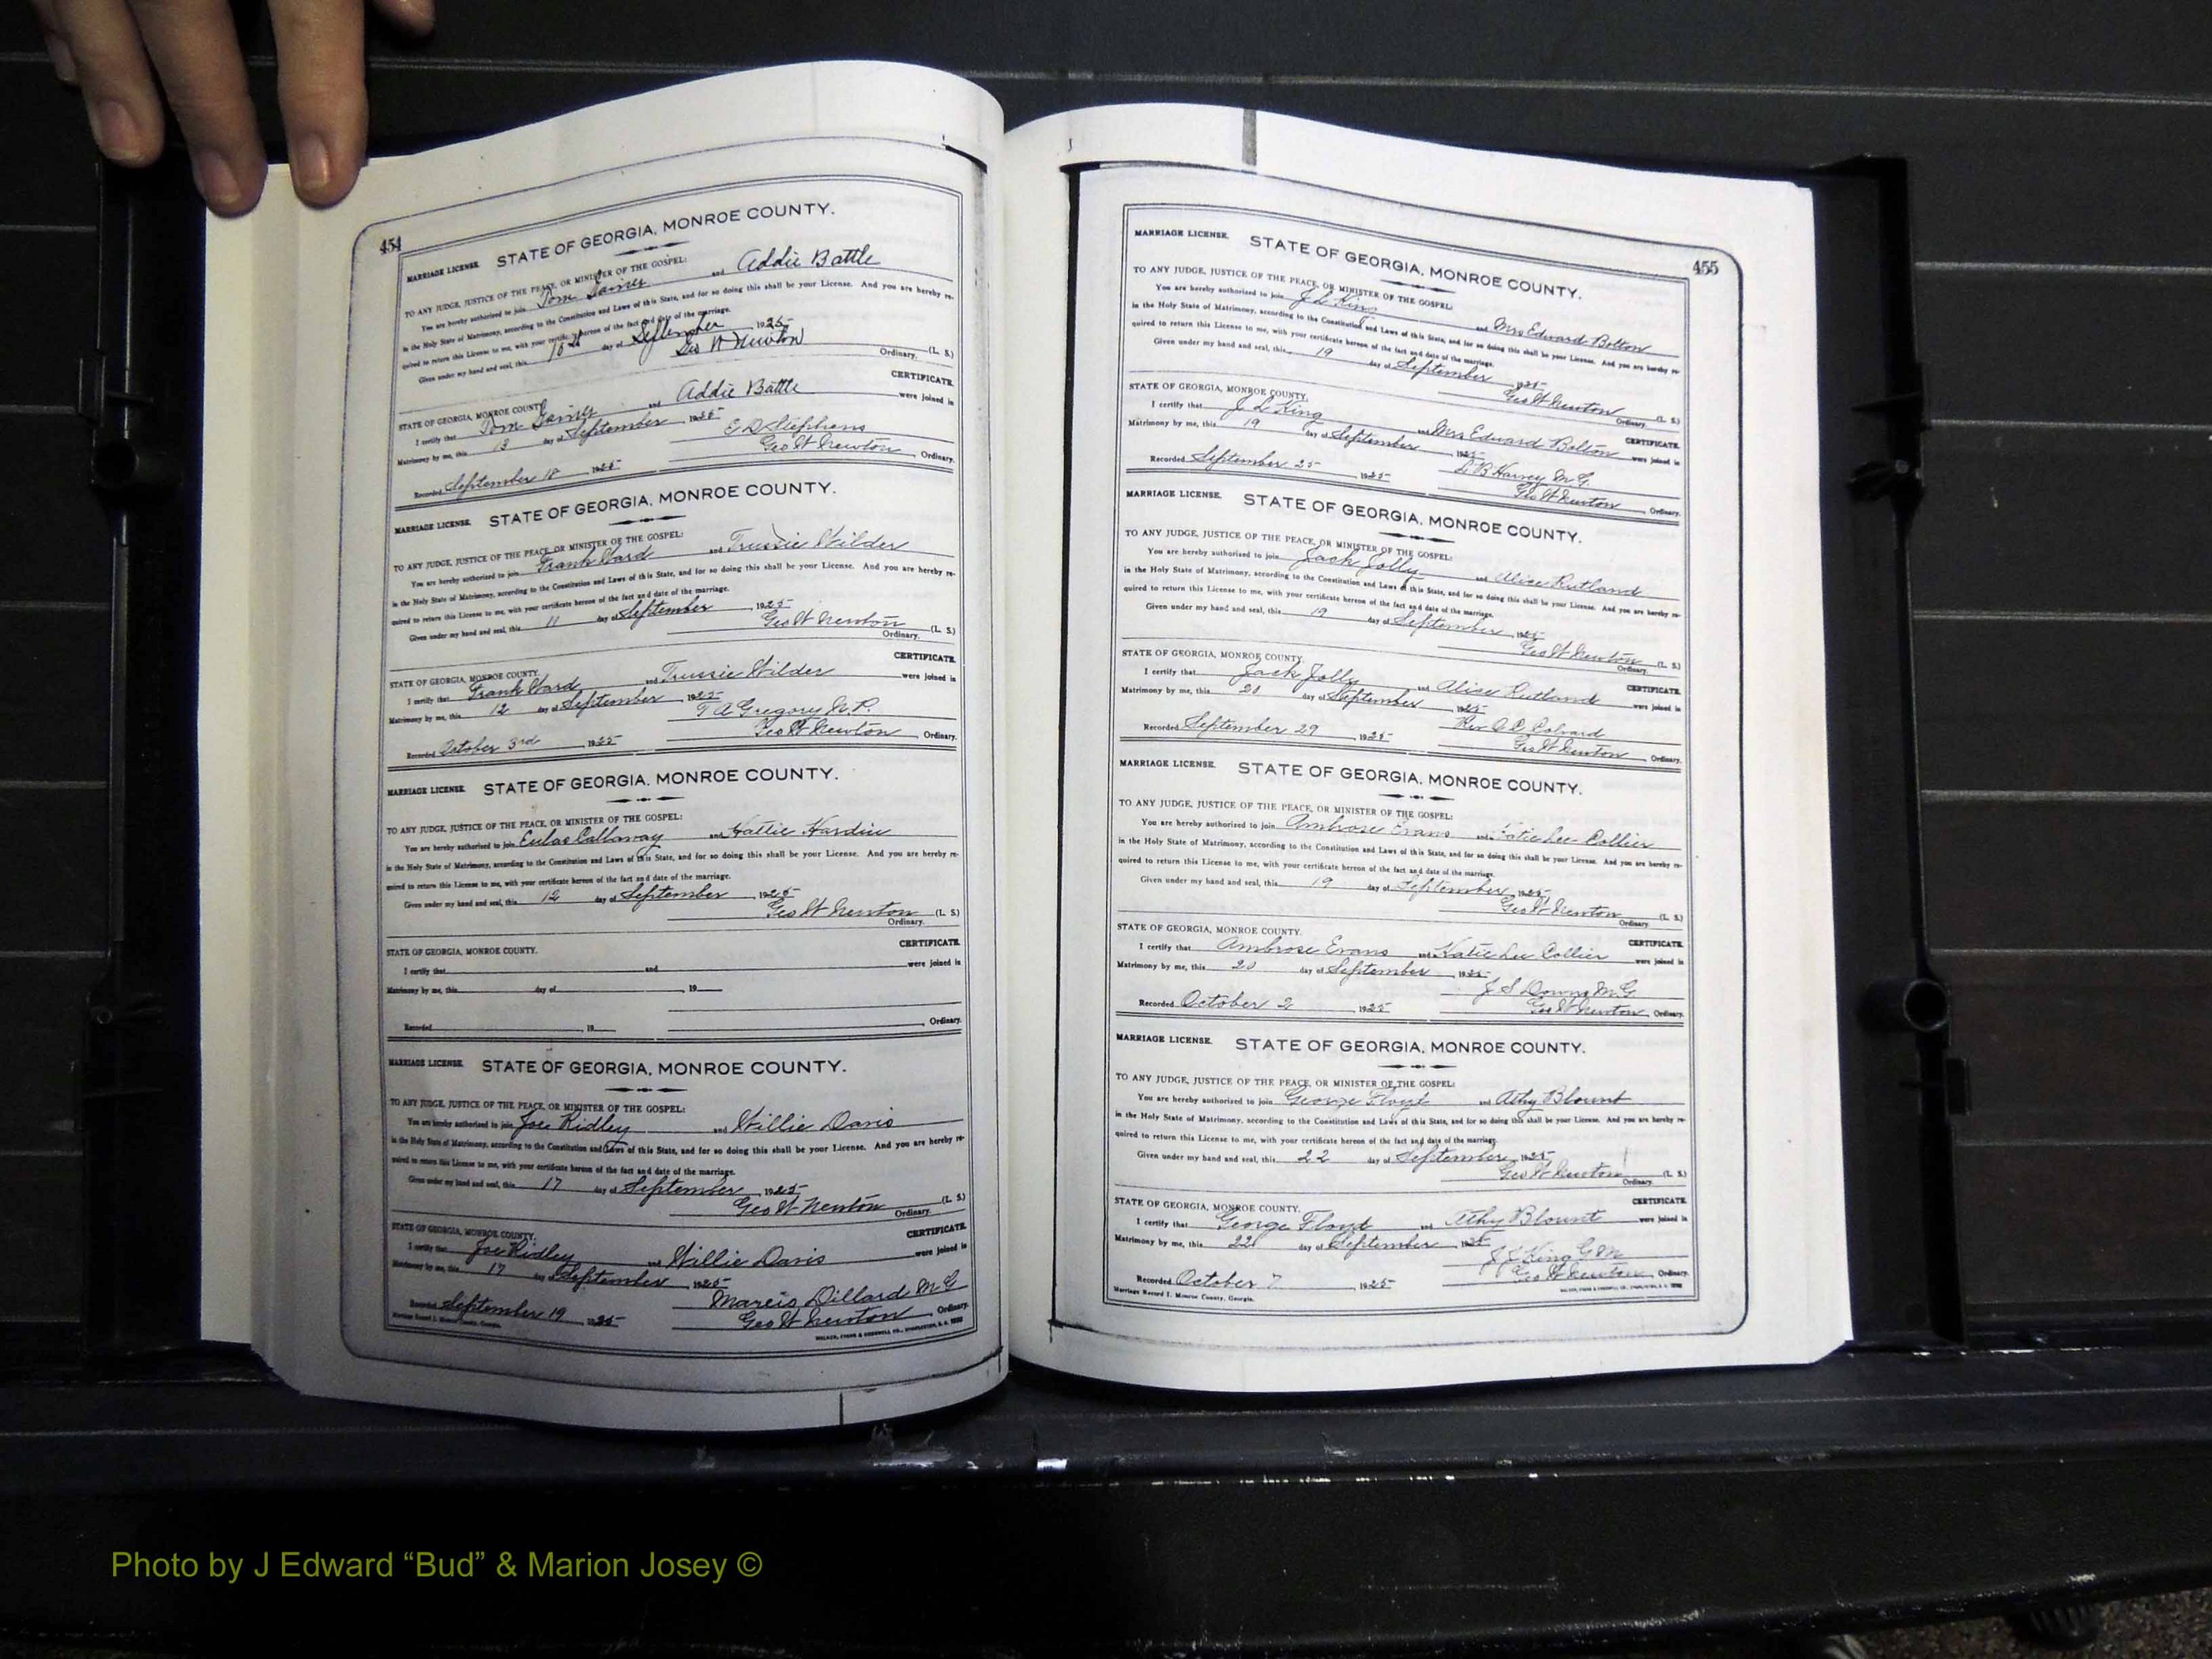 454
STATE OF GEORGIA, MONROE COUNTY.
MARRIAGE LICENSE.
TO ANY JUDGE, JUSTICE OF THE PEACE, OR MINISTER OF THE GOSPEL:
You are hereby authorized to join Tom and Addie Battle
in the Holy State of Matrimony, according to the Constitution and Laws of this State, and for so doing this shall be your License. And you are hereby re-
quired to return this License to me, with your certificate hereon of the fact and date of the marriage.
Given under my hand and seal, this day of September 1925
Geo W Newton (L. S.)
Ordinary.
CERTIFICATE.
STATE OF GEORGIA, MONROE COUNTY.
I certify that Tom and Addie Battle were joined in
Matrimony by me, this 13 day of September 1925
E D Stephens
Recorded September 18 1925 Geo W Newton Ordinary.
MARRIAGE LICENSE. STATE OF GEORGIA, MONROE COUNTY.
TO ANY JUDGE, JUSTICE OF THE PEACE, OR MINISTER OF THE GOSPEL:
You are hereby authorized to join Frank Ward and Trussie Wilder
in the Holy State of Matrimony, according to the Constitution and Laws of this State, and for so doing this shall be your License. And you are hereby re-
quired to return this License to me, with your certificate hereon of the fact and date of the marriage.
Given under my hand and seal, this 11 day of September, 1925
Geo W Newton (L. S.)
Ordinary.
CERTIFICATE.
STATE OF GEORGIA, MONROE COUNTY.
I certify that Frank Ward and Trussie Wilder were joined in
Matrimony by me, this 12 day of September, 1925
T A Gregory N. P.
Recorded October 3rd, 1925 Geo W Newton, Ordinary.
MARRIAGE LICENSE. STATE OF GEORGIA, MONROE COUNTY.
TO ANY JUDGE, JUSTICE OF THE PEACE, OR MINISTER OF THE GOSPEL:
You are hereby authorized to join Eulas Callaway and Hattie Hardin
in the Holy State of Matrimony, according to the Constitution and Laws of this State, and for so doing this shall be your License. And you are hereby re-
quired to return this License to me, with your certificate hereon of the fact and date of the marriage.
Given under my hand and seal, this 12 day of September, 1925
Geo W Newton (L. S.)
Ordinary.
CERTIFICATE.
STATE OF GEORGIA, MONROE COUNTY.
I certify that and were joined in
Matrimony by me, this day of , 19
Recorded , 19 , Ordinary.
MARRIAGE LICENSE. STATE OF GEORGIA, MONROE COUNTY.
TO ANY JUDGE, JUSTICE OF THE PEACE, OR MINISTER OF THE GOSPEL:
You are hereby authorized to join Joe Ridley and Willie Davis
in the Holy State of Matrimony, according to the Constitution and Laws of this State, and for so doing this shall be your License. And you are hereby re-
quired to return this License to me, with your certificate hereon of the fact and date of the marriage.
Given under my hand and seal, this 17 day of September, 1925
Geo W Newton (L. S.)
Ordinary.
CERTIFICATE.
STATE OF GEORGIA, MONROE COUNTY.
I certify that Joe Ridley and Willie Davis were joined in
Matrimony by me, this 17 day of September, 1925
Marcis Dillard M G
Recorded September 19 1925 Geo W Newton, Ordinary.
Marriage Record I. Monroe County, Georgia.
455
MARRIAGE LICENSE. STATE OF GEORGIA, MONROE COUNTY.
TO ANY JUDGE, JUSTICE OF THE PEACE, OR MINISTER OF THE GOSPEL:
You are hereby authorized to join J L King and Mrs Edward Bolton
in the Holy State of Matrimony, according to the Constitution and Laws of this State, and for so doing this shall be your License. And you are hereby re-
quired to return this License to me, with your certificate hereon of the fact and date of the marriage.
Given under my hand and seal, this 19 day of September 1925
Geo W Newton (L. S.)
Ordinary.
STATE OF GEORGIA, MONROE COUNTY.
CERTIFICATE.
I certify that J L King and Mrs Edward Bolton were joined in
Matrimony by me, this 19 day of September, 1925
Harvey M G.
Recorded September 25, 1925 Geo W Newton, Ordinary.
MARRIAGE LICENSE. STATE OF GEORGIA, MONROE COUNTY.
TO ANY JUDGE, JUSTICE OF THE PEACE, OR MINISTER OF THE GOSPEL:
You are hereby authorized to join Jack Jolly and Alice Rutland
in the Holy State of Matrimony, according to the Constitution and Laws of this State, and for so doing this shall be your License. And you are hereby re-
quired to return this License to me, with your certificate hereon of the fact and date of the marriage.
Given under my hand and seal, this 19 day of September, 1925
Geo W Newton (L. S.)
Ordinary.
STATE OF GEORGIA, MONROE COUNTY.
CERTIFICATE.
I certify that Jack Jolly and Alice Rutland were joined in
Matrimony by me, this 20 day of September, 1925
Rev Colvard
Recorded September 29, 1925 Geo W Newton, Ordinary.
MARRIAGE LICENSE. STATE OF GEORGIA, MONROE COUNTY.
TO ANY JUDGE, JUSTICE OF THE PEACE, OR MINISTER OF THE GOSPEL:
You are hereby authorized to join Ambrose Evans and Katie Lee Collier
in the Holy State of Matrimony, according to the Constitution and Laws of this State, and for so doing this shall be your License. And you are hereby re-
quired to return this License to me, with your certificate hereon of the fact and date of the marriage.
Given under my hand and seal, this 19 day of September, 1925
Geo W Newton (L. S.)
Ordinary.
STATE OF GEORGIA, MONROE COUNTY.
CERTIFICATE.
I certify that Ambrose Evans and Katie Lee Collier were joined in
Matrimony by me, this 20 day of September, 1925
J S Downs M.G
Recorded October 2, 1925 Geo W Newton, Ordinary.
MARRIAGE LICENSE. STATE OF GEORGIA, MONROE COUNTY.
TO ANY JUDGE, JUSTICE OF THE PEACE, OR MINISTER OF THE GOSPEL:
You are hereby authorized to join George Floyd and Athy Blount
in the Holy State of Matrimony, according to the Constitution and Laws of this State, and for so doing this shall be your License. And you are hereby re-
quired to return this License to me, with your certificate hereon of the fact and date of the marriage.
Given under my hand and seal, this 22 day of September, 1925
Geo W Newton (L. S.)
Ordinary.
STATE OF GEORGIA, MONROE COUNTY.
CERTIFICATE.
I certify that George Floyd and Athy Blount were joined in
Matrimony by me, this 22 day of September, 1925
King G M
Recorded October 7, 1925 Geo W Newton, Ordinary.
Marriage Record I. Monroe County, Georgia.
Photo by J Edward “Bud” & Marion Josey ©